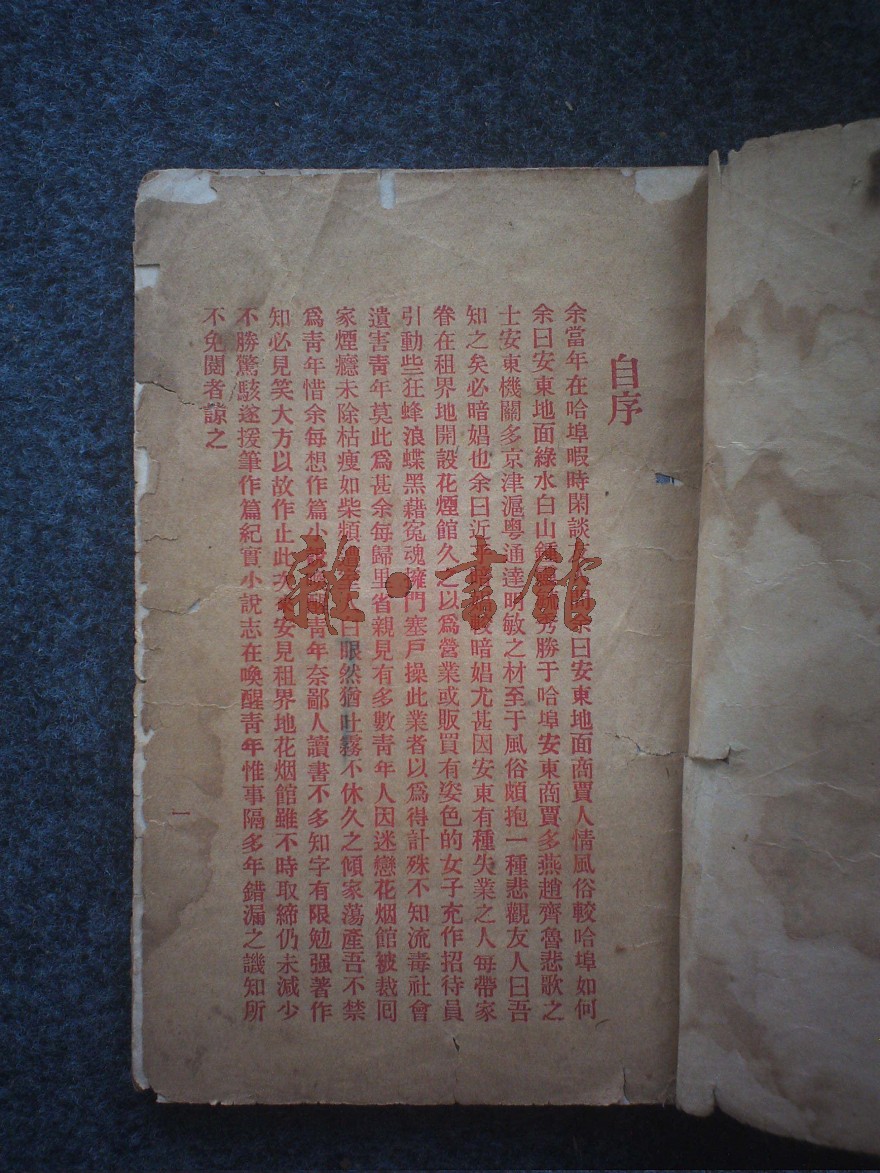 自序
余當年在哈埠暇時閑談余曰安東地面商賈人情風俗較哈埠如何
余曰安東地面綠水白山鍾秀勝于哈埠安東商賈多燕趙齊魯悲歌之
士安東機關多京津滬粵通達明敏之材至于風俗頗抱一種悲觀友人曰吾
知之矣必暗娼也余曰近暗娼尤甚因安東有種失業之人每帶家
眷在租界地開設花煙館久之以爲營業或販買有姿色的女子充作招待員
引動些狂蜂浪蝶黑藉冤魂擁門塞戶操此業者以爲得計殊不知流毒社會
遺害靑年莫此爲甚余每歸里省親見有多數靑年人因迷戀花烟館被裁回
家煙癮未除枯瘦如柴頹白眼然猶吐霧不休久之傾家蕩產吾不禁
爲靑年惜余每想作篇小靑年奈鄙人讀書不多知字有限勉强著作
知必見笑大方以故作止此次安見租界地花烟館雖不時取締仍未減少
不勝驚駭遂援筆作篇紀實小說志在喚醒靑年惟事隔多年錯漏之譏知所
不免閱者諒之
一
雜·書館